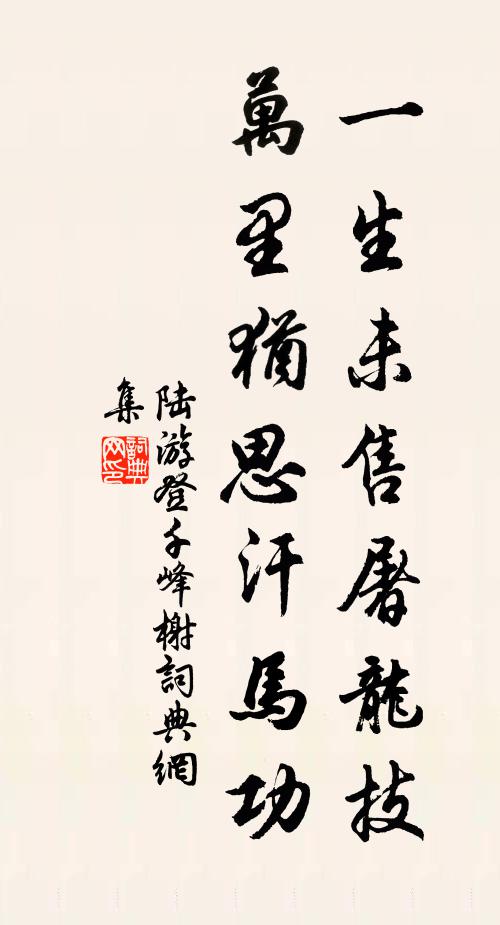 一生未售屠龍技
萬里猶思汗馬功
陆游登千峰榭詞典網
集
詞典
网印